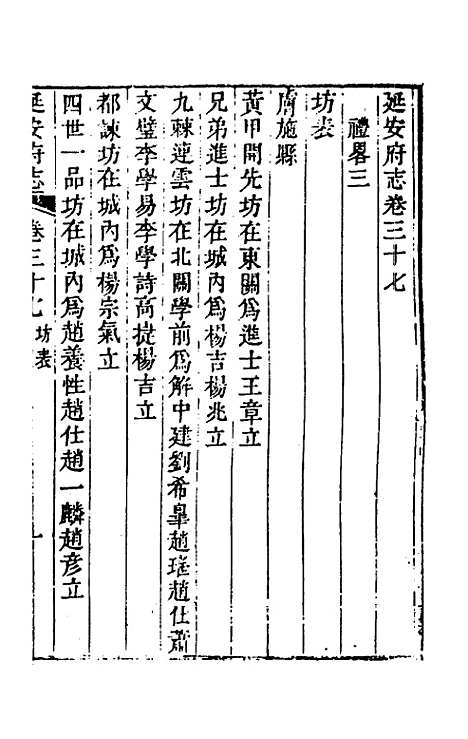 延安府志卷三十七
禮畧三
坊表
膚施縣
黃甲開先坊在東關爲進士王章立
兄弟進士坊在城內爲楊吉楊兆立
九棘連雲坊在北關學前爲解中建劉希臯趙瑤趙仕蕭
文璧李學易李學詩高捷楊吉立
都諫坊在城內爲楊宗氣立
四世一品坊在城內爲趙養性趙仕趙一麟趙彥立
延安府志 卷三十七 坊表 一